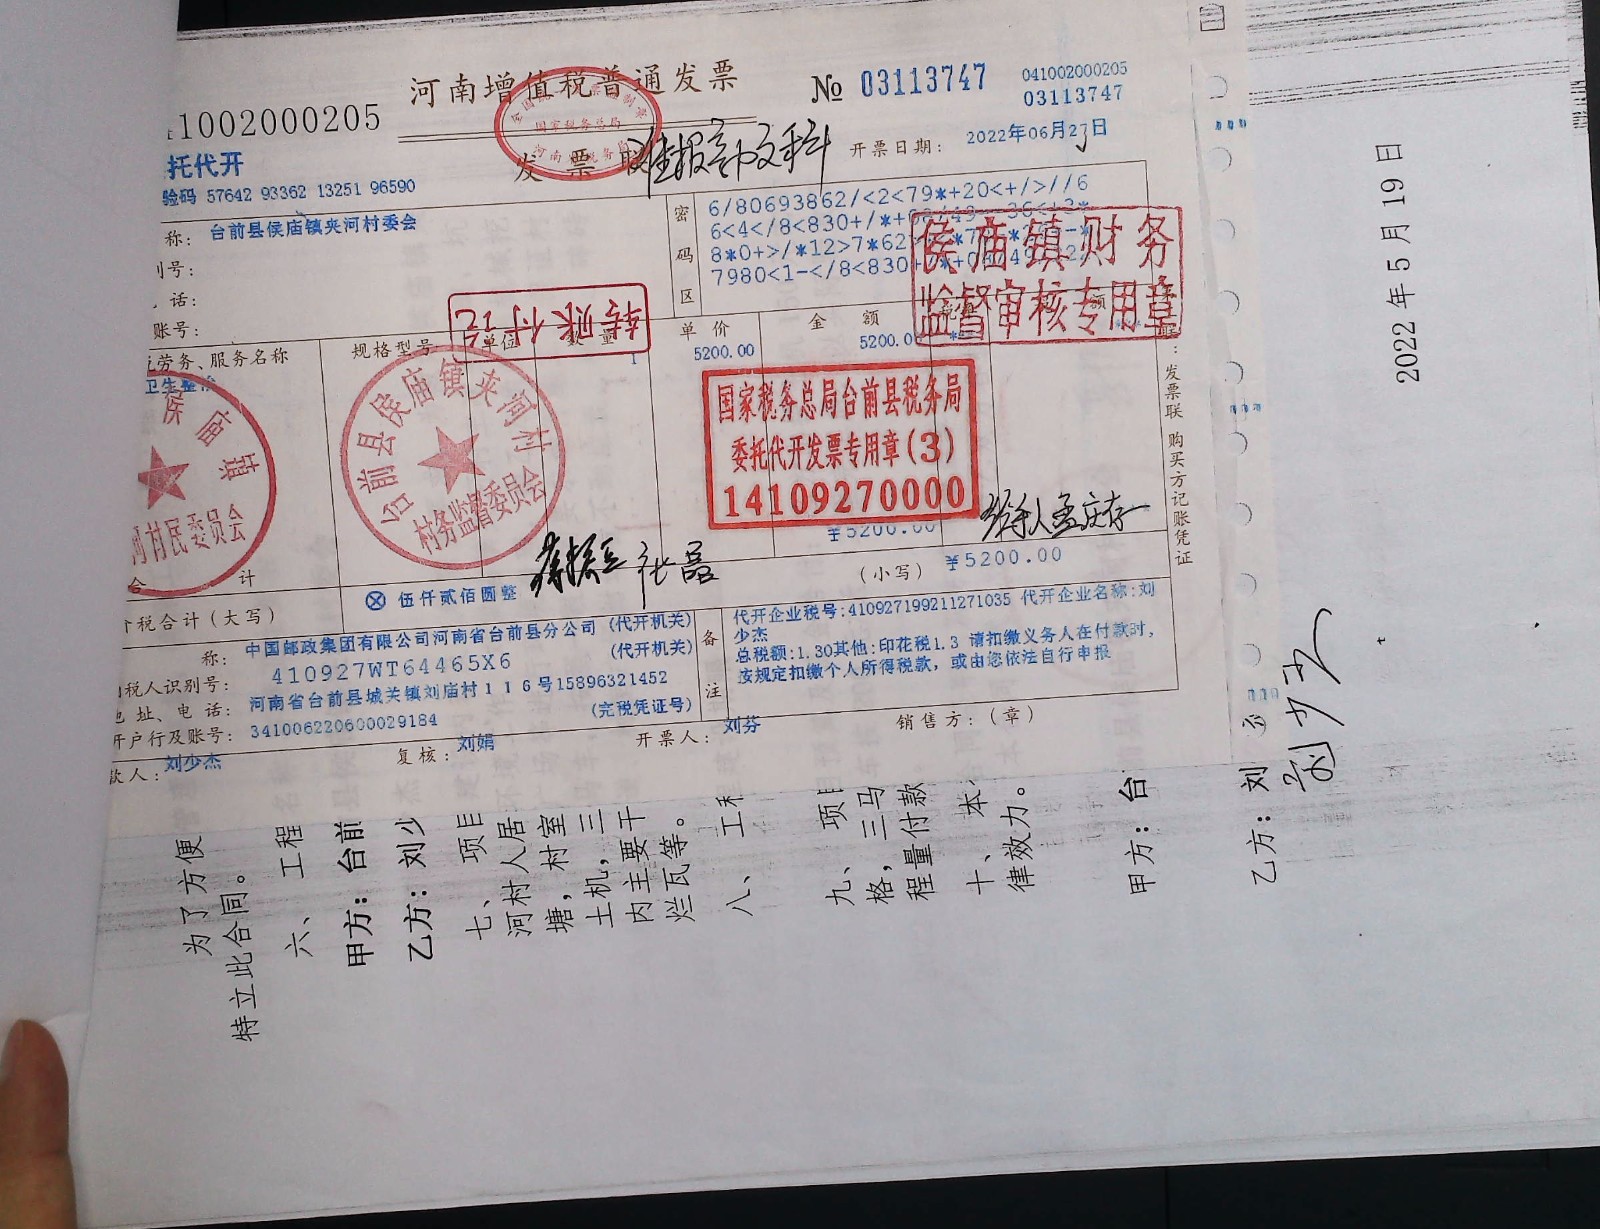 1002000205
河南增值税普通发票
№ 03113747
041002000205
03113747
托代开
发票
准报
开票日期: 2022年06月27日
验码 57642 93362 13251 96590
称: 台前县侯庙镇夹河村委会
号:
话:
账号:
密码区
6/80693862/<2<79*+20<+/>//6
侯庙镇财务
监督审核专用章
转账付讫
劳务、服务名称
规格型号
单位
数量
单价
金额
卫生整
1
5200.00
5200.0
国家税务总局台前县税务局
委托代开发票专用章(3)
14109270000
侯庙镇
河村民委员会
台前县侯庙镇夹河村
村务监督委员会
国家税务总局
经手人孟庆存
合计
¥5200.00
价税合计(大写)
ⓧ 伍仟贰佰圆整
(小写) ¥5200.00
称: 中国邮政集团有限公司河南省台前县分公司 (代开机关)
税人识别号: 410927WT64465X6 (代开机关)
地址、电话: 河南省台前县城关镇刘庙村116号15896321452
开户行及账号: 341006220600029184 (完税凭证号)
备注
代开企业税号:410927199211271035 代开企业名称:刘
少杰
总税额:1.30其他:印花税1.3 请扣缴义务人在付款时,
按规定扣缴个人所得税款, 或由您依法自行申报
款人: 刘少杰
复核: 刘娟
开票人: 刘芬
销售方:(章)
发票联 购买方记账凭证
为了方便
特立此合同。
六、 工程
甲方: 台前
乙方: 刘少
七、 项目
河村人居环境
塘, 村室
土机, 三
内主要干
烂瓦等。
八、 工程
九、 项目
格, 三马
程量付款
十、 本
律效力。
甲方: 台
乙方: 刘
2022 年 5 月 19 日